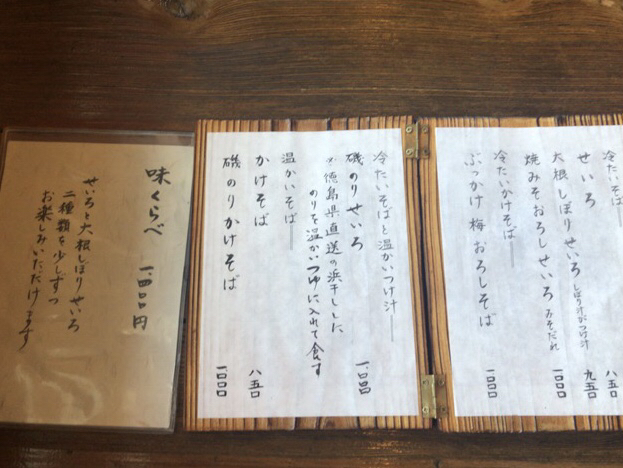 冷たいそば
せいろ 八五〇
大根しぼりせいろ しぼり汁がつけ汁 九五〇
焼みそおろしせいろ みそだれ 一〇〇〇
冷たいかけそば
ぶっかけ 梅おろしそば 一〇〇〇
冷たいそばと温かいつけ汁
磯のりせいろ
※徳島県直送の浜干しした
のりを温かいつゆに入れて食す
温かいそば
かけそば 八五〇
磯のりかけそば 一〇〇〇
味くらべ 一四〇〇円
せいろと大根しぼりせいろ
二種類を少しずつ
お楽しみいただけます